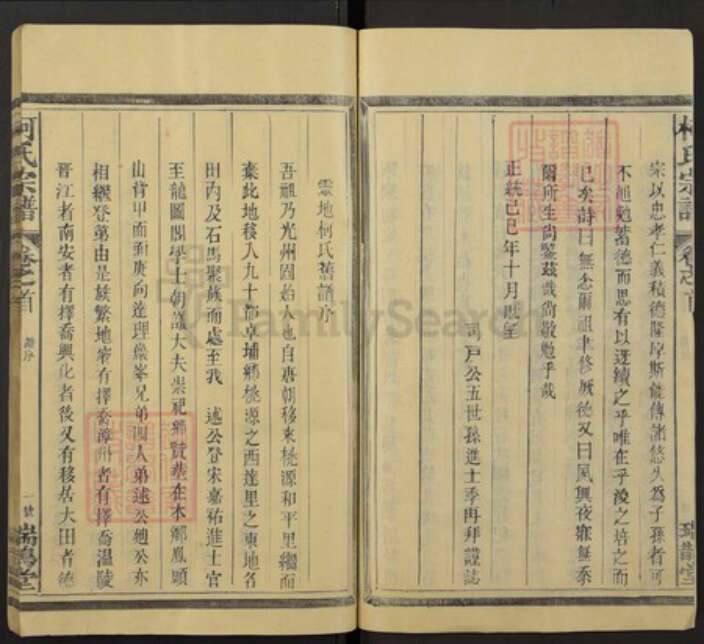 宗以忠孝仁義積德隆厚斯能傳諸悠久為子孫者可
不逓勉蓄德而思有以迓續之乎唯在乎浚之培之而
已矣詩曰無念爾祖聿修厥德又曰夙興夜寐無忝
爾所生尚鑒茲哉尚敬勉乎哉
正統己巳年十月既望
司戶公五世孫進士季再拜謹誌
靈地柯氏舊譜序
吾祖乃光州固始人也自唐朝移來桃源和平里繼而
棄此地移入九十都卓埔鄉桃源之西達里之東地名
田內及石馬聚族而處至我 述公登宋嘉祐進士官
至龍圖閣學士朝議大夫崇祀鄉賢塟在本鄉鳳頭
山肯甲面庚向達理巖峯兄弟四人弟述公總公亦
相繼登第由是族繁地窄有擇喬漳州者有擇喬溫陵
晉江者南安者有擇喬興化者後又有移居大田者德
柯氏宗譜
卷之首
譜序
一號
瑞鵲堂
FamilySearch